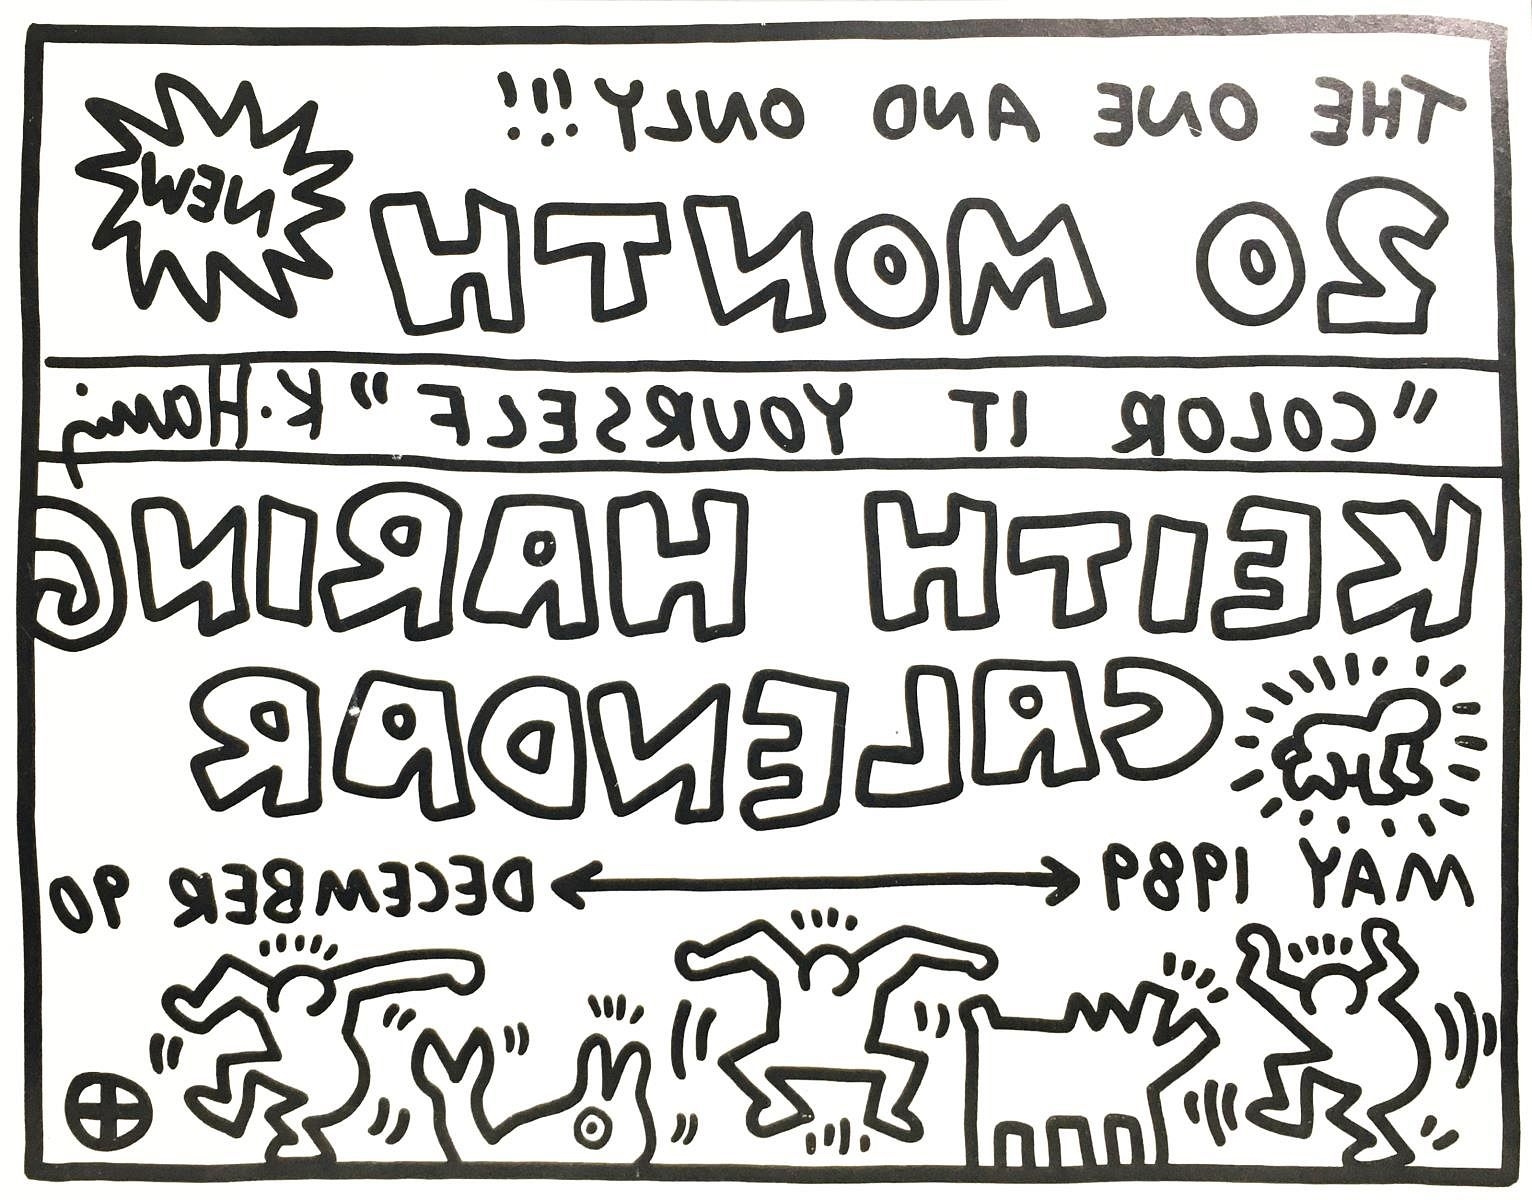 THE ONE AND ONLY!!!
20 MONTH
NEW
"COLOR IT YOURSELF" K. Haring
KEITH HARING
CALENDAR
MAY 1989 DECEMBER 90